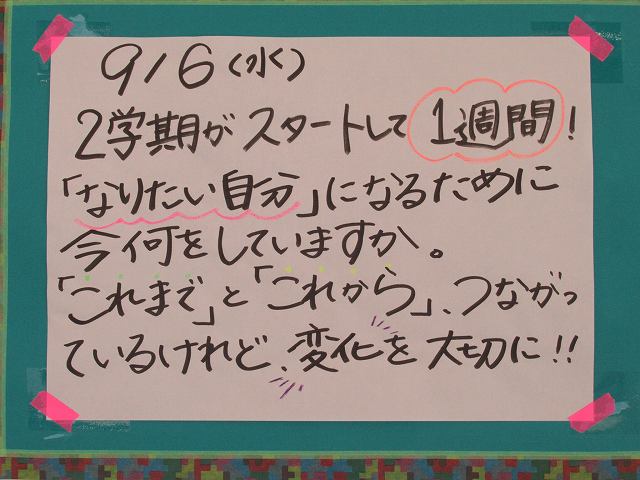 9/6(水)
2学期がスタートして1週間!
「なりたい自分」になるために
今何をしていますか。
「これまで」と「これから」、つながっ
ているけれど、変化を大切に!!